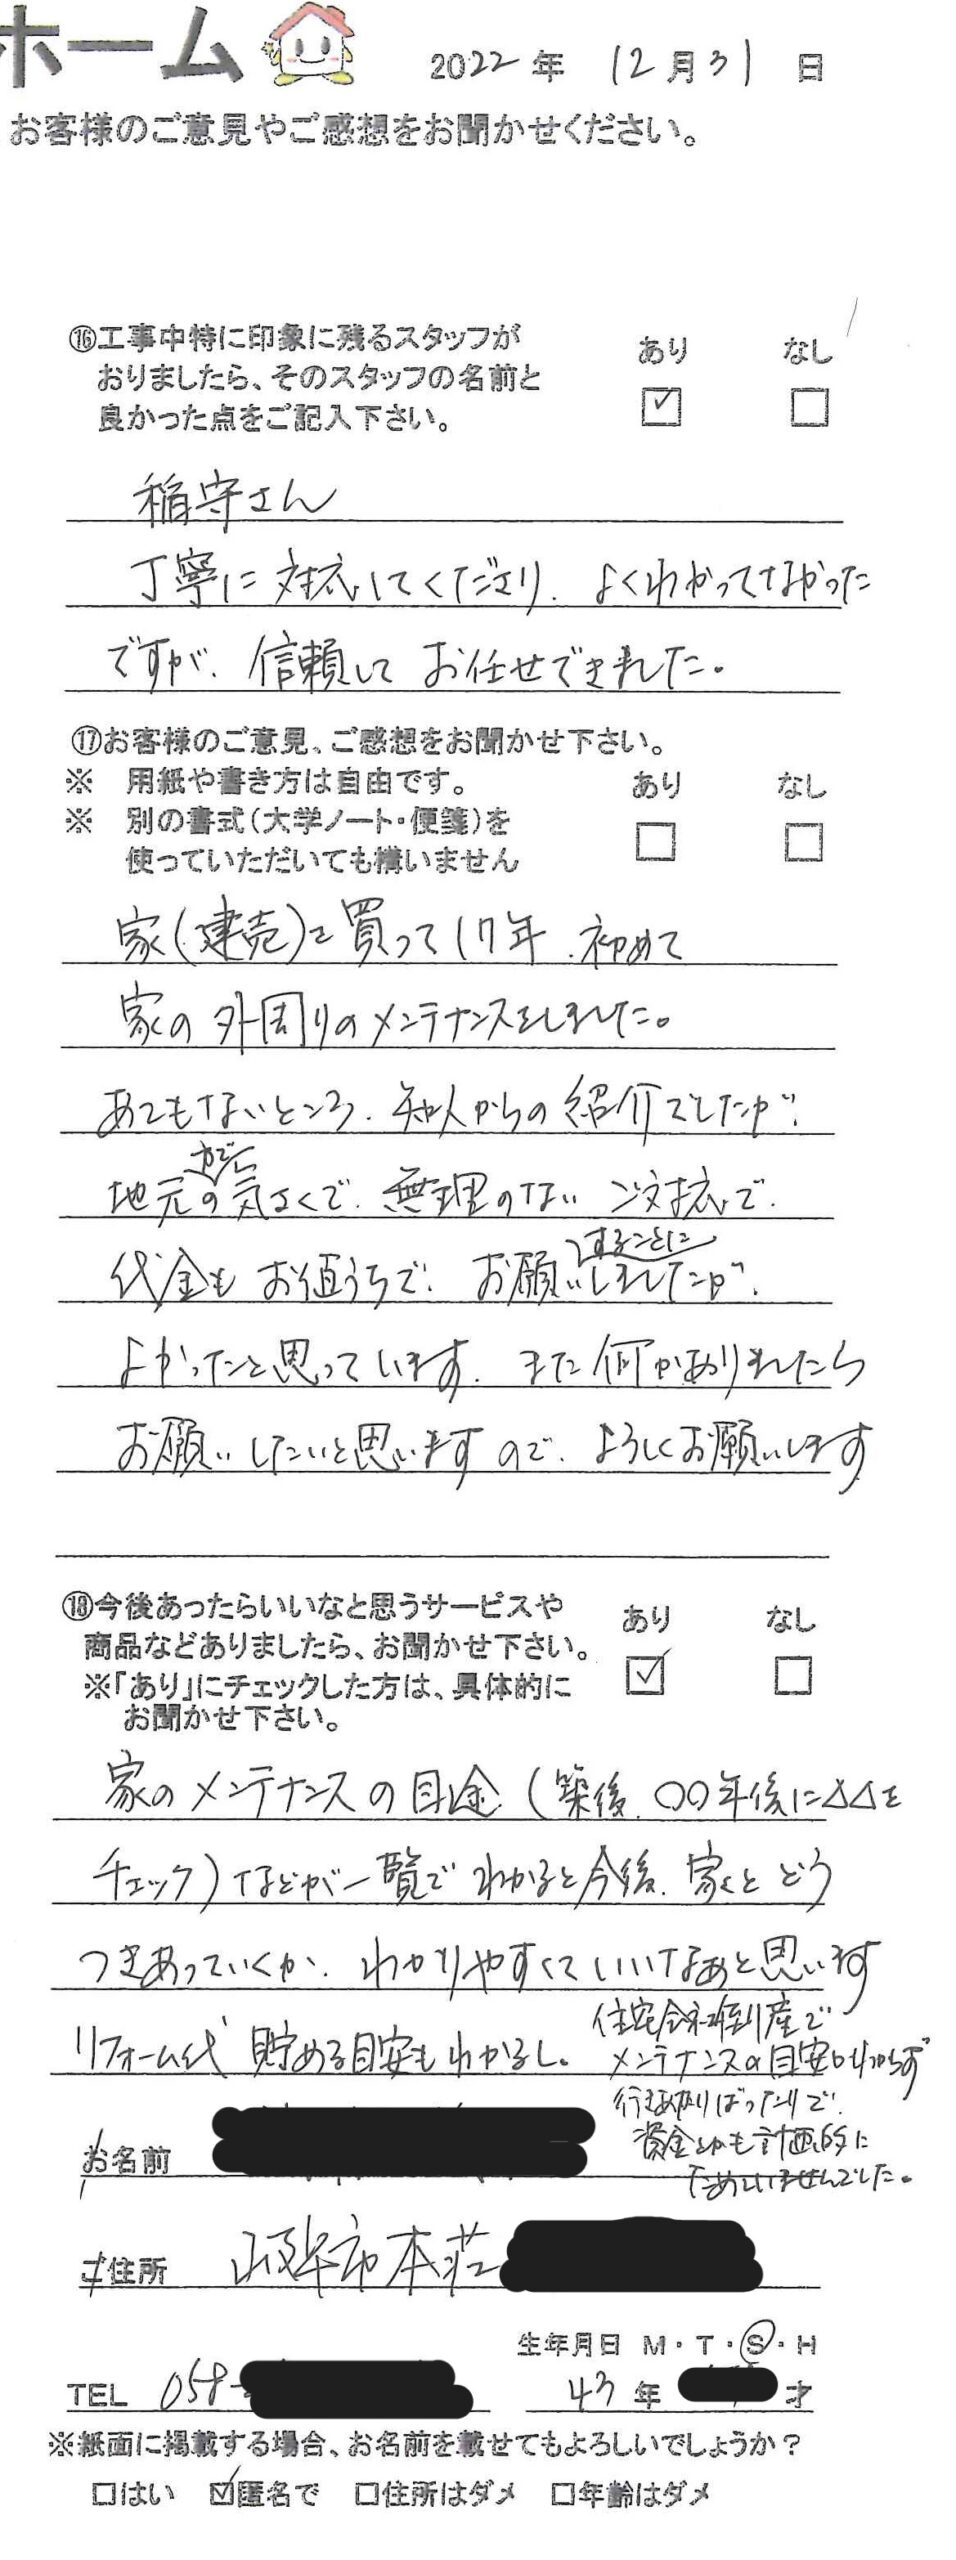 ホーム
2022年 12月31日
お客様のご意見やご感想をお聞かせください。
⑯工事中特に印象に残るスタッフが
おりましたら、そのスタッフの名前と
良かった点をご記入下さい。
あり なし
稲守さん
丁寧に対応してくださり、よくわかってなかった
ですが、信頼してお任せできました。
⑰お客様のご意見、ご感想をお聞かせ下さい。
※ 用紙や書き方は自由です。
※ 別の書式(大学ノート・便箋)を
使っていただいても構いません
あり なし
家(建売)を買って17年、初めて
家の外周りのメンテナンスをしました。
あてもないところ、知人からの紹介でしたが、
地元の気さくで、無理のないご対応で、
代金もお値うちで、お願いすることにしましたが、
よかったと思っています。また何かありましたら
お願いしたいと思いますので、よろしくお願いします
⑱今後あったらいいなと思うサービスや
商品などありましたら、お聞かせ下さい。
※「あり」にチェックした方は、具体的に
お聞かせ下さい。
あり なし
家のメンテナンスの目途(築後、〇〇年後に△△を
チェック)などが一覧でわかると今後、家とどう
つきあっていくか、わかりやすくていいなあと思います
リフォーム代 貯める目安もわかるし。
住宅会社倒産で
メンテナンスの目安もわからず
行きあたりばったりで、
資金とかも計画的に
ためていませんでした。
お名前
ご住所 岐阜市本荘
生年月日 M・T・S・H
TEL 058-
43年 才
※紙面に掲載する場合、お名前を載せてもよろしいでしょうか？
□はい ☑匿名で □住所はダメ □年齢はダメ